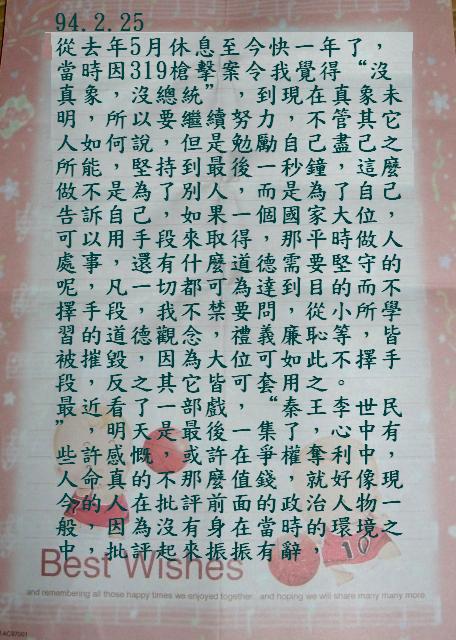 94.2.25
從去年5月休息至今快一年了，
當時因319槍擊案令我覺得“沒
真象，沒總統”，到現在真象未
明，所以要繼續努力，不管其它
人如何說，但是勉勵自己盡己之
所能，堅持到最後一秒鐘，這麼
做不是為了別人，而是為了自己，
告訴自己，如果一個國家大位，
可以用手段來取得，那平時做人
處事，還有什麼道德需要堅守的
呢，凡一切都可為達到目的而不
擇手段，我不禁要問，從小所學
習的道德觀念，禮義廉恥等，皆
被摧毀，因為大位可如此不擇手
段，反之其它皆可套用之。
最近看了一部戲，“秦王李世民
”，明天是最後一集了，心中有
些許感慨，或許在爭權奪利中，
人命真的不那麼值錢，就好像現
今的人在批評前面的政治人物一
般，因為沒有身在當時的環境之
中，批評起來振振有辭，
10
Best Wishes
and remembering all those happy times we enjoyed together and hoping we will share many many more.